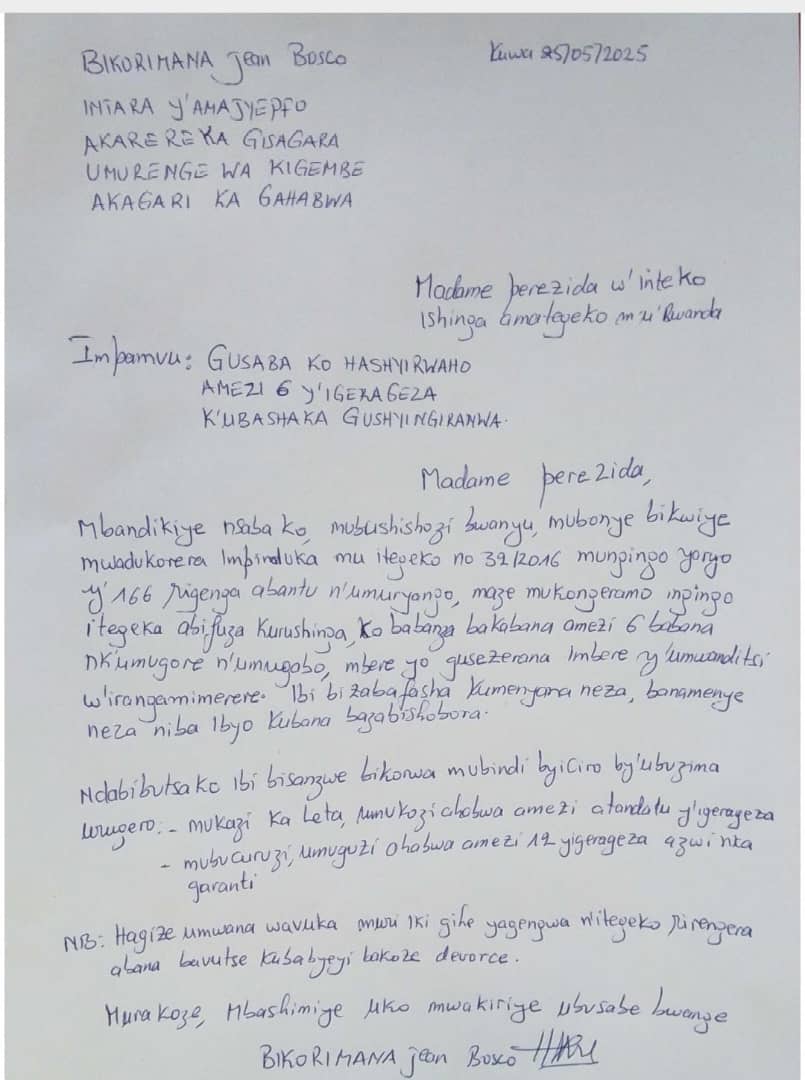 BIKORIMANA Jean Bosco
Kuwa 25/05/2025
INTARA Y'AMAJYEPFO
AKARERE KA GISAGARA
UMURENGE WA KIGEMBE
AKAGARI KA GAHABWA
Madame perezida w'inteko
Ishinga amategeko mu'Rwanda
Impamvu: GUSABA KO HASHYIRWAHO
AMEZI 6 Y'IGERAGEZA
K'UBASHAKA GUSHYINGIRANWA.
Madame perezida,
Mbandikiye nsaba ko, mubushishozi bwanyu, mubonye bikwiye
mwadukorera Impinduka mu itegeko no 32/2016 mungingo yaryo
y'166 rigenga abantu n'umuryango, maze mukongeramo ingingo
itegeka abifuza Kurushinga, Ko babanza bakabana amezi 6 babana
nk'umugore n'umugabo, mbere yo gusezerana Imbere y'umwanditsi
w'irangamimerere. Ibi bizabafasha Kumenyana neza, banamenye
neza niba Ibyo Kubana bazabishobora.
Ndabibutsa ko ibi bisanzwe bikorwa mubindi byiciro by'ubuzima
urugero: - mukazi Ka Leta, umukozi ahabwa amezi atandatu y'igerageza
- mubucuruzi, umuguzi ahabwa amezi 12 yigerageza azwi nka
garanti
NB: Hagize umwana wavuka muri Iki gihe yagengwa n'itegeko rirengera
abana bavutse Kubabyeyi bakoze devorce.
Murakoze, Mbashimiye uko mwakiriye ubusabe bwange
BIKORIMANA Jean Bosco